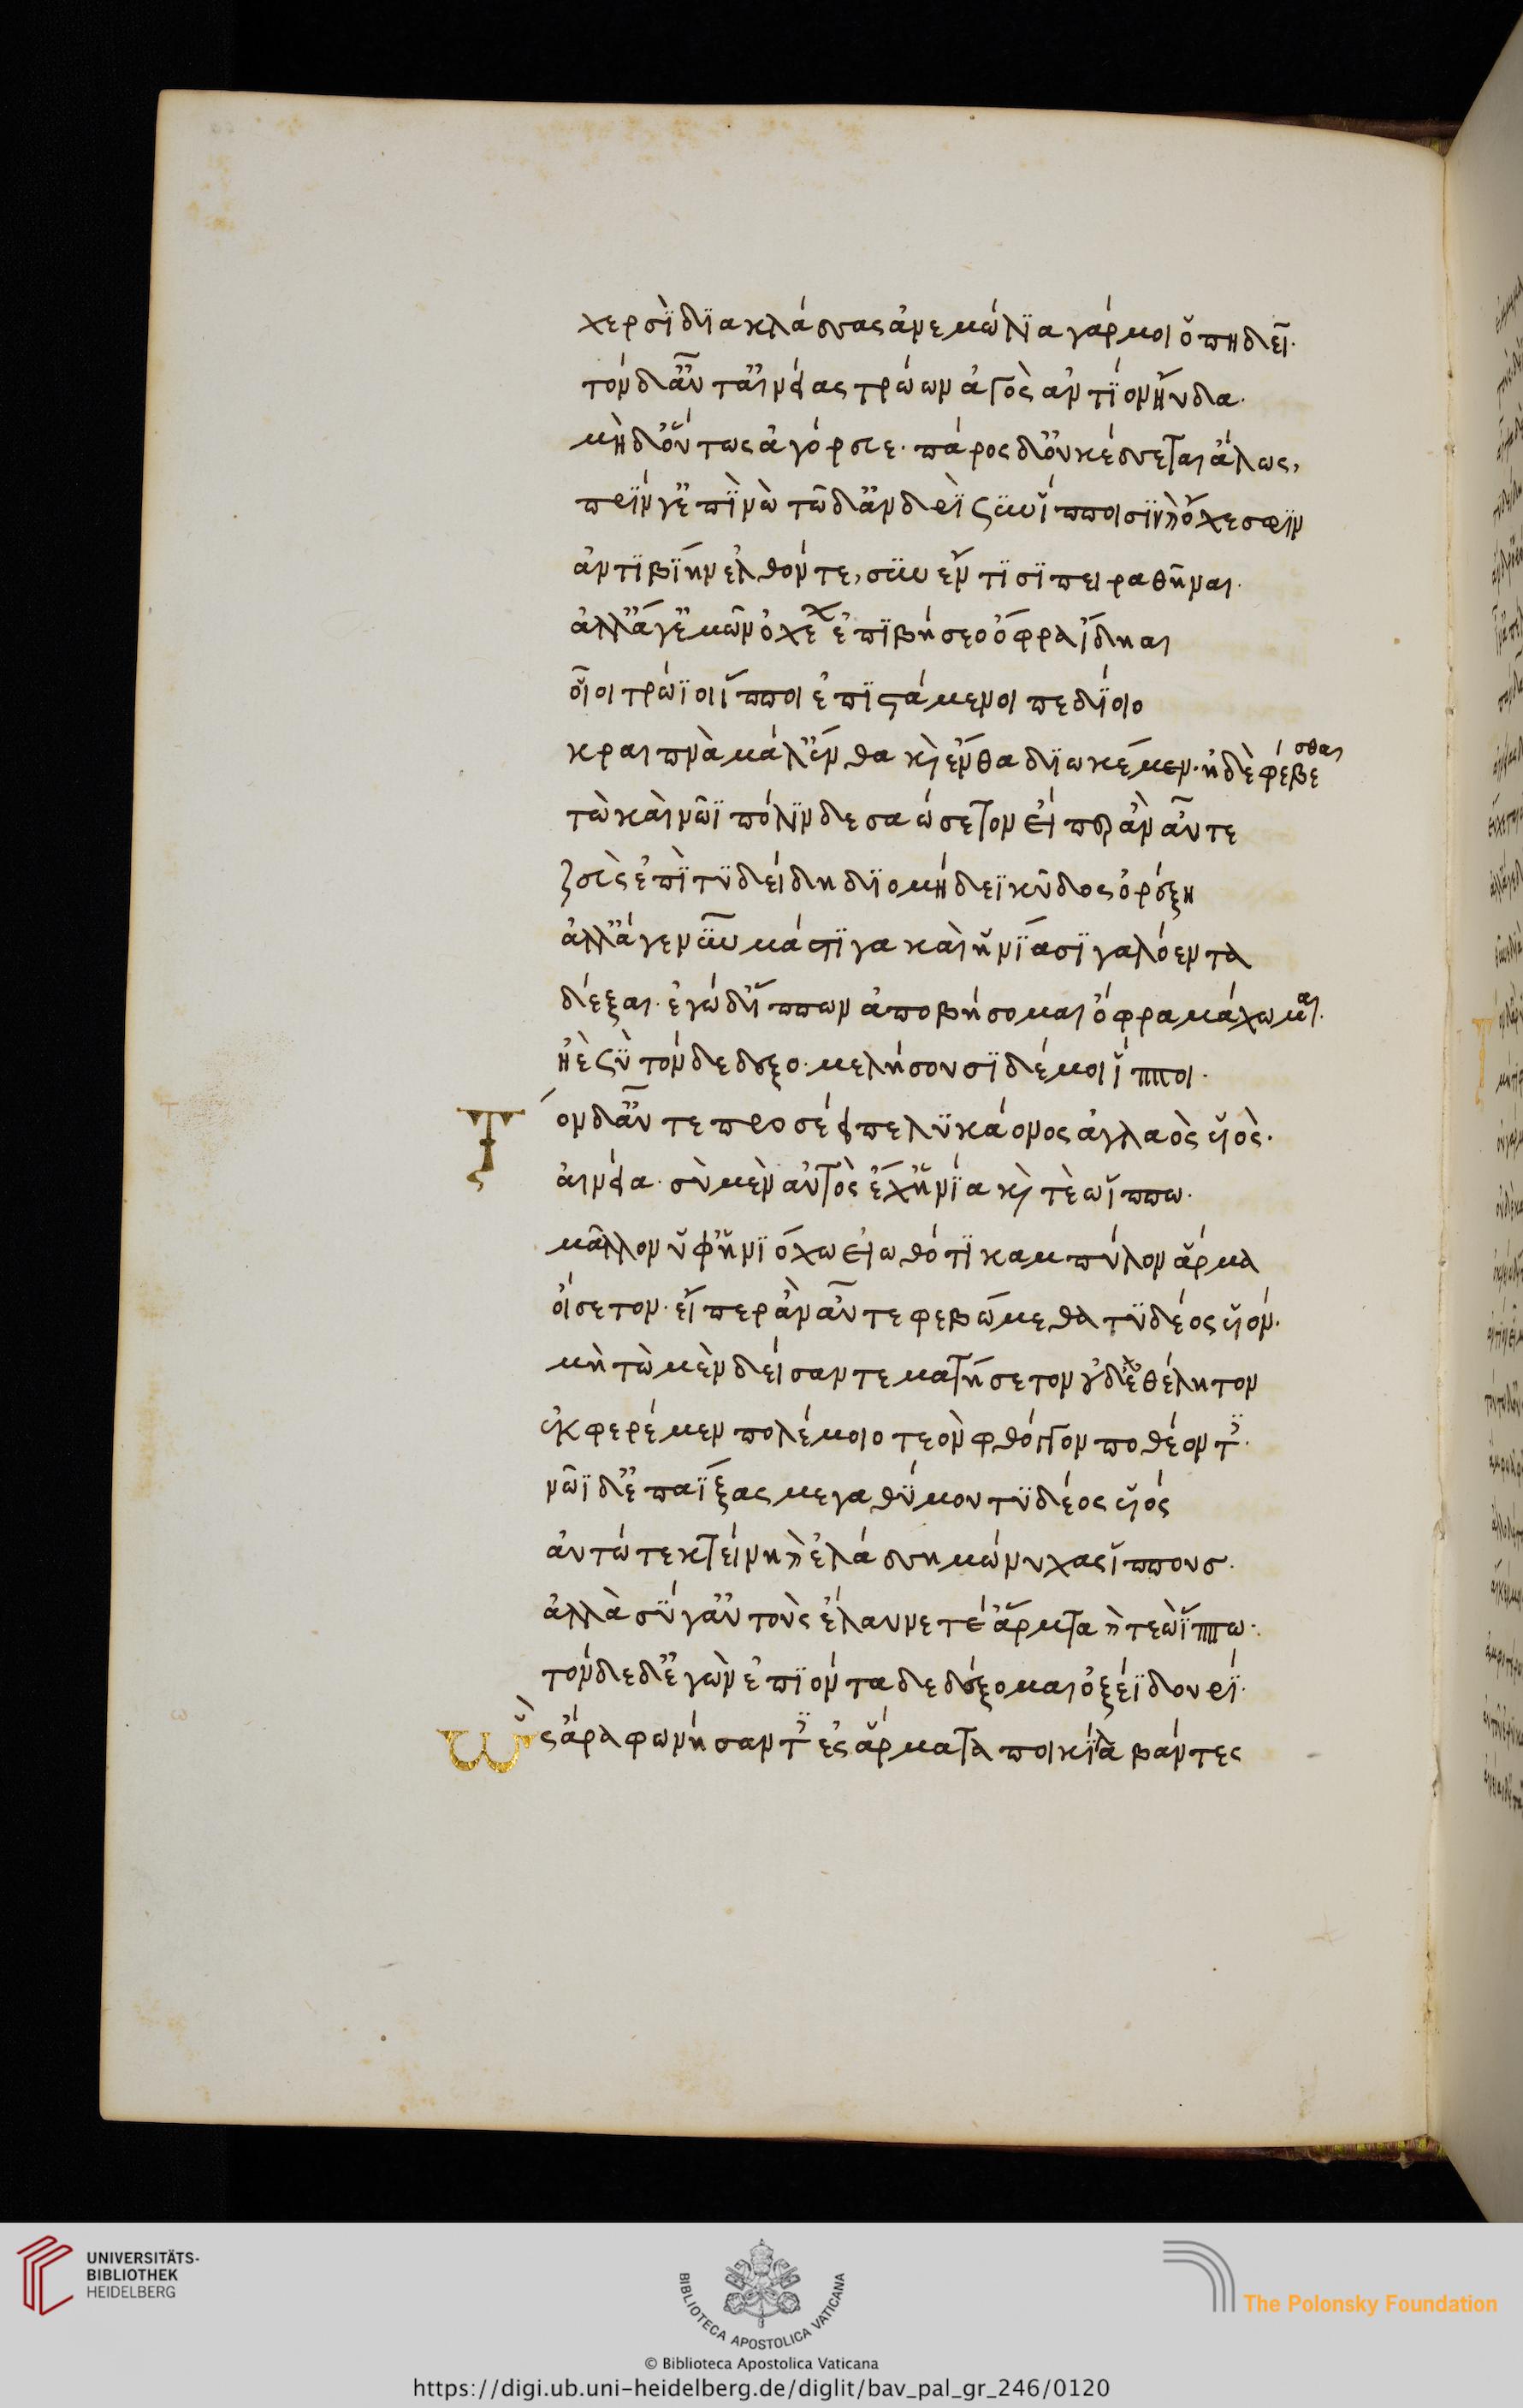 χερσὶ διακλάσσας ἀνεμώλια γάρ μοι ὀπηδεῖ.
τὸν δ' αὖτ' αἰνείας τρώων ἀγὸς ἀντίον ηὔδα.
μὴ δ' οὕτως ἀγόρευε. πάρος δ' οὐκ ἔσσεται ἄλλως,
πρίν γ' ἐπὶ νὼ τῶδ' ἀνδρὶ σὺν ἵπποισιν καὶ ὄχεσφιν
ἀντιβίην ἐλθόντε, σὺν ἔντεσι πειραθῆναι.
ἀλλ' ἄγ' ἐμῶν ὀχέων ἐπιβήσεο ὄφρα ἴδηαι
οἷοι τρώϊοι ἵπποι ἐπιστάμενοι πεδίοιο
κραιπνὰ μάλ' ἔνθα καὶ ἔνθα διωκέμεν. ἠδὲ φέβεσθαι
τὼ καὶ νῶϊ πόλινδε σαώσετον εἴπερ ἂν αὖτε
ζεὺς ἐπὶ τυδείδη διομήδεϊ κῦδος ὀρέξη
ἀλλ' ἄγε νῦν μάστιγα καὶ ἡνία σιγαλόεντα
δέξαι. ἐγὼ δ' ἵππων ἀποβήσομαι ὄφρα μάχωμαι.
ἠὲ σὺ τόνδε δέδεξο. μελήσουσι δέ μοι ἵπποι.
Τὸν δ' αὖτε προσέειπε λυκάονος ἀγλαὸς υἱὸς.
αἰνεία. σὺ μὲν αὐτὸς ἔχ' ἡνία καὶ τεὼ ἵππω.
μᾶλλον ὑφ' ἡνιόχω εἰωθότι καμπύλον ἅρμα
οἴσετον. εἴπερ ἂν αὖτε φεβώμεθα τυδέος υἱόν.
μὴ τὼ μὲν δείσαντε ματήσετον οὐδ' ἐθέλητον
ἐκφερέμεν πολέμοιο τεὸν φθόγγον ποθέοντε.
νῶϊ δ' ἐπαΐξας μεγαθύμου τυδέος υἱός
αὐτώ τε κτείνη καὶ ἐλάσση μώνυχας ἵππους.
ἀλλὰ σύ γ' αὐτοὺς ἔλαυνε τέ' ἅρματα καὶ τεὼ ἵππω.
τόνδε δ' ἐγὼν ἐπιόντα δεδέξομαι ὀξέϊ δουρί.
Ὣς ἄρα φωνήσαντες ἐς ἅρματα ποικίλα βάντες
UNIVERSITÄTS-
BIBLIOTHEK
HEIDELBERG
BIBLIOTECA APOSTOLICA VATICANA
The Polonsky Foundation
© Biblioteca Apostolica Vaticana
https://digi.ub.uni-heidelberg.de/diglit/bav_pal_gr_246/0120